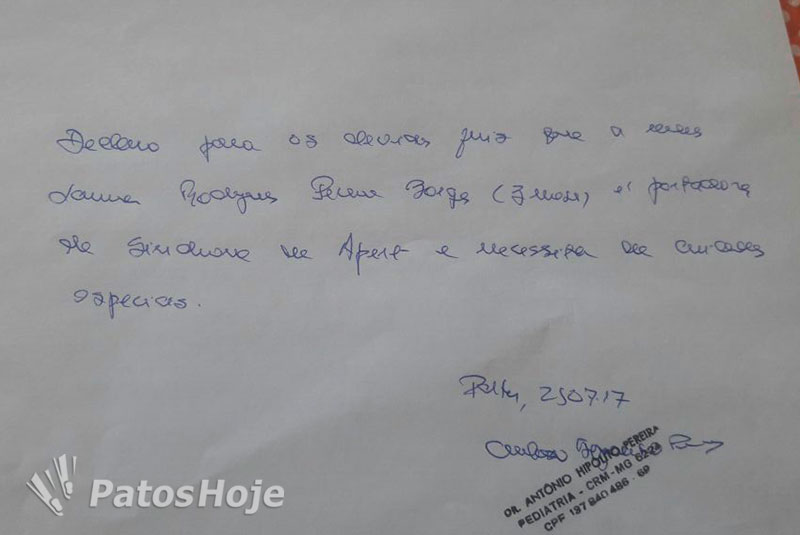 Declaro para os devidos fins que a menor
Rodrigues Pereira Borges (3 meses) é portadora
de Sindrome de Apert e necessita de cuidados
especiais.
Patos, 25.07.17
DR. ANTÔNIO HIPÓLITO PEREIRA
PEDIATRIA - CRM-MG 6294
CPF 197 840 486 - 69
PatosHoje